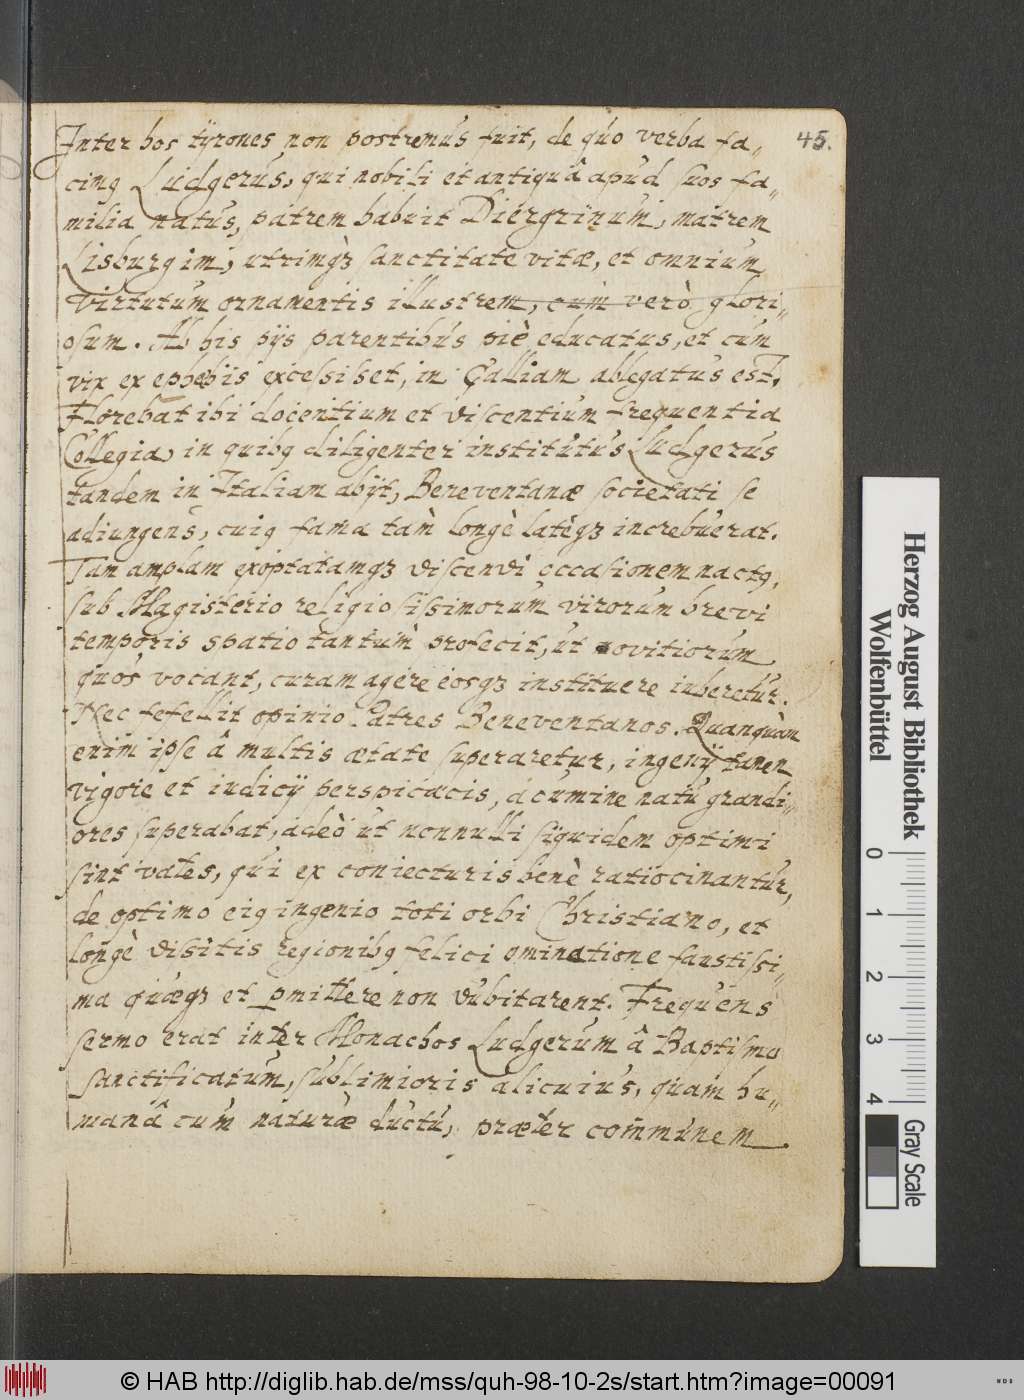 Inter hos tÿrones non postremus fuit, de quo verba fa„
45.
cimꝰ Ludgerus, qui nobili et antiquâ apud suos fa„
milia natus, patrem habuit Diergrinum, matrem
Lisburgim, utrimqꝫ sanctitate vitæ, et omnium
virtutum ornamentis illustrem, cum verò glori„
osum. Ab his pijs parentibus piè educatus, et cum
vix ex ephebiis excesisset, in Galliam ablegatus est.
Florebat ibi docentium et discentium frequentia
Collegia, in quibꝰ diligenter institutus Ludgerus
tandem in Italiam abijt, Beneventanæ societati se
adiungens, cuiꝰ fama tam longè latèqꝫ increbuerat.
Tam amplam exoptatamqꝫ discendi occasionem nactꝰ,
sub Magisterio religiosissimorum virorum brevi
temporis spatio tantum profecit, ut novitiorum
quos vocant, curam agere eosqꝫ instituere iuberetur.
Nec fefellit opinio Patres Beneventanos. Quanquàm
enim ipse â multis ætate superaretur, ingenij tamen
vigore et iudicij perspicacis, acumine natu grandi„
ores superabat, adeò ut nonnulli siquidem optimi
sint vates, qui ex coniecturis benè ratiocinantur,
de optimo eiꝰ ingenio toti orbi Christiano, et
longè dissitis regionibꝰ felici ominatione faustissi„
ma quæqꝫ et ꝓmittere non dubitarent. Frequens
sermo erat inter Monachos Ludgerum â Baptismo
sanctificatum, sublimioris alicuius, quam hu„
manâ cum naturæ ductu, præter comminem
Herzog August Bibliothek
Wolfenbüttel
0 1 2 3 4
Gray Scale
© HAB http://diglib.hab.de/mss/quh-98-10-2s/start.htm?image=00091